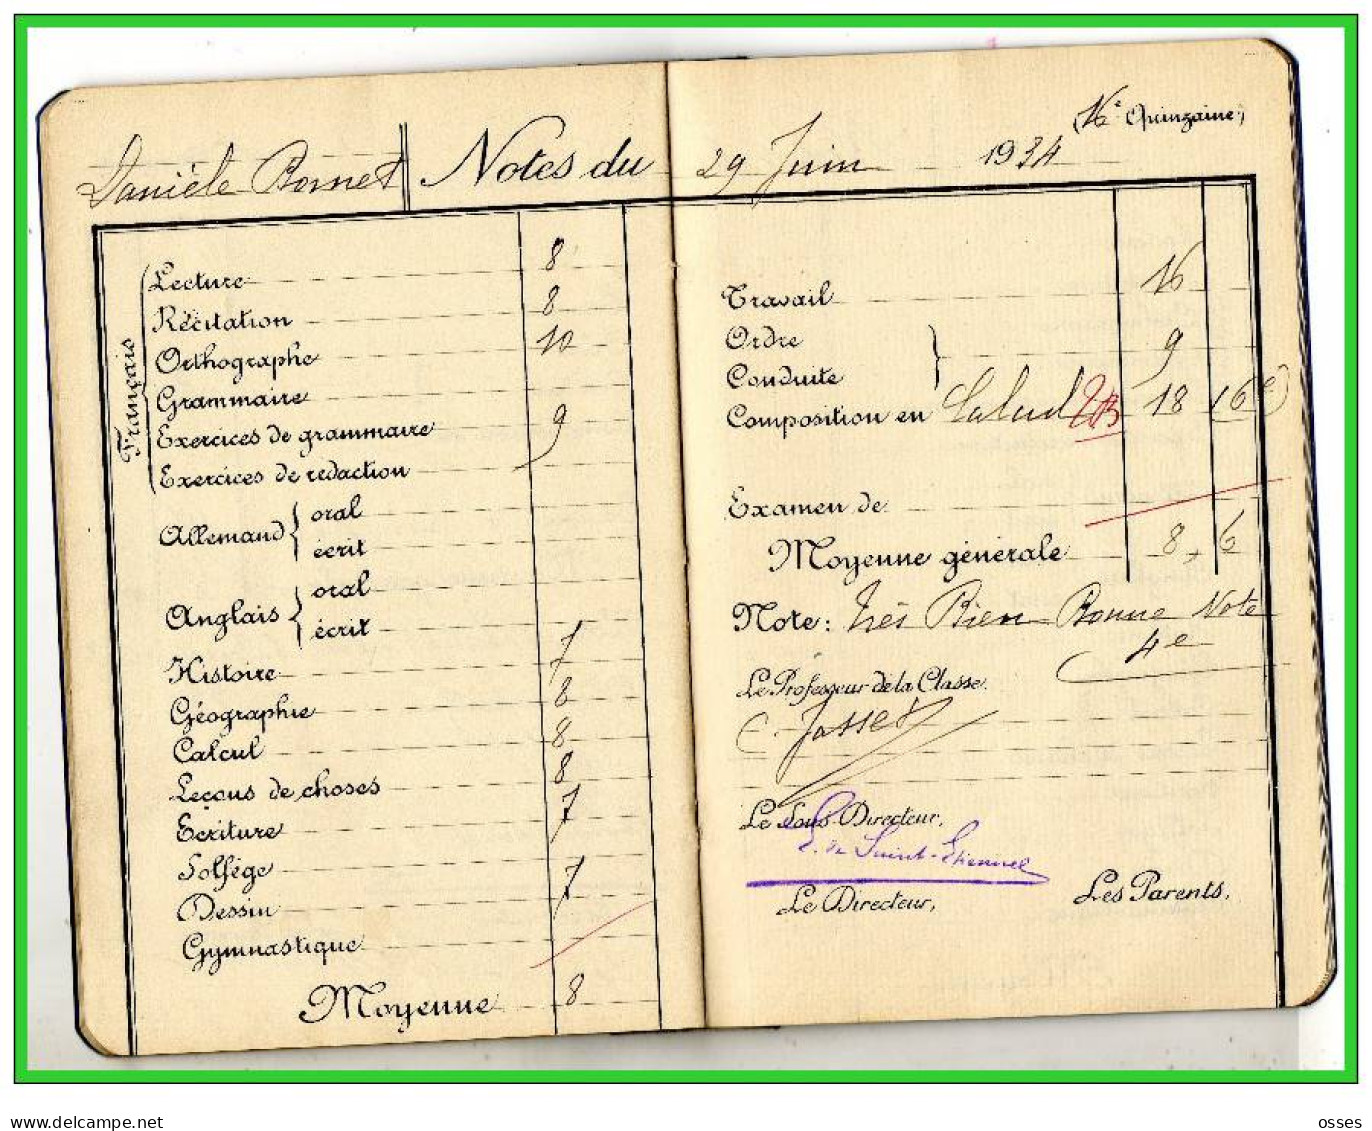 Danièle Bornet
Notes du 29 Juin 1934
(16e Quinzaine)
Français
Lecture 8
Récitation 8
Orthographe 10
Grammaire
Exercices de grammaire 9
Exercices de redaction
Allemand { oral
écrit
Anglais { oral
écrit
Histoire 7
Géographie 8
Calcul 8
Leçons de choses 8
Ecriture 7
Solfège
Dessin 7
Gymnastique
Moyenne 8
Travail 16
Ordre
Conduite } 9
Composition en Calcul TB 18 (6e)
Examen de
Moyenne générale 8,6
Note: Très Bien Bonne Note
4e
Le Professeur de la Classe.
Le Sous Directeur,
E. de Saint-Etienne
Le Directeur,
Les Parents,
www.delcampe.net
osses